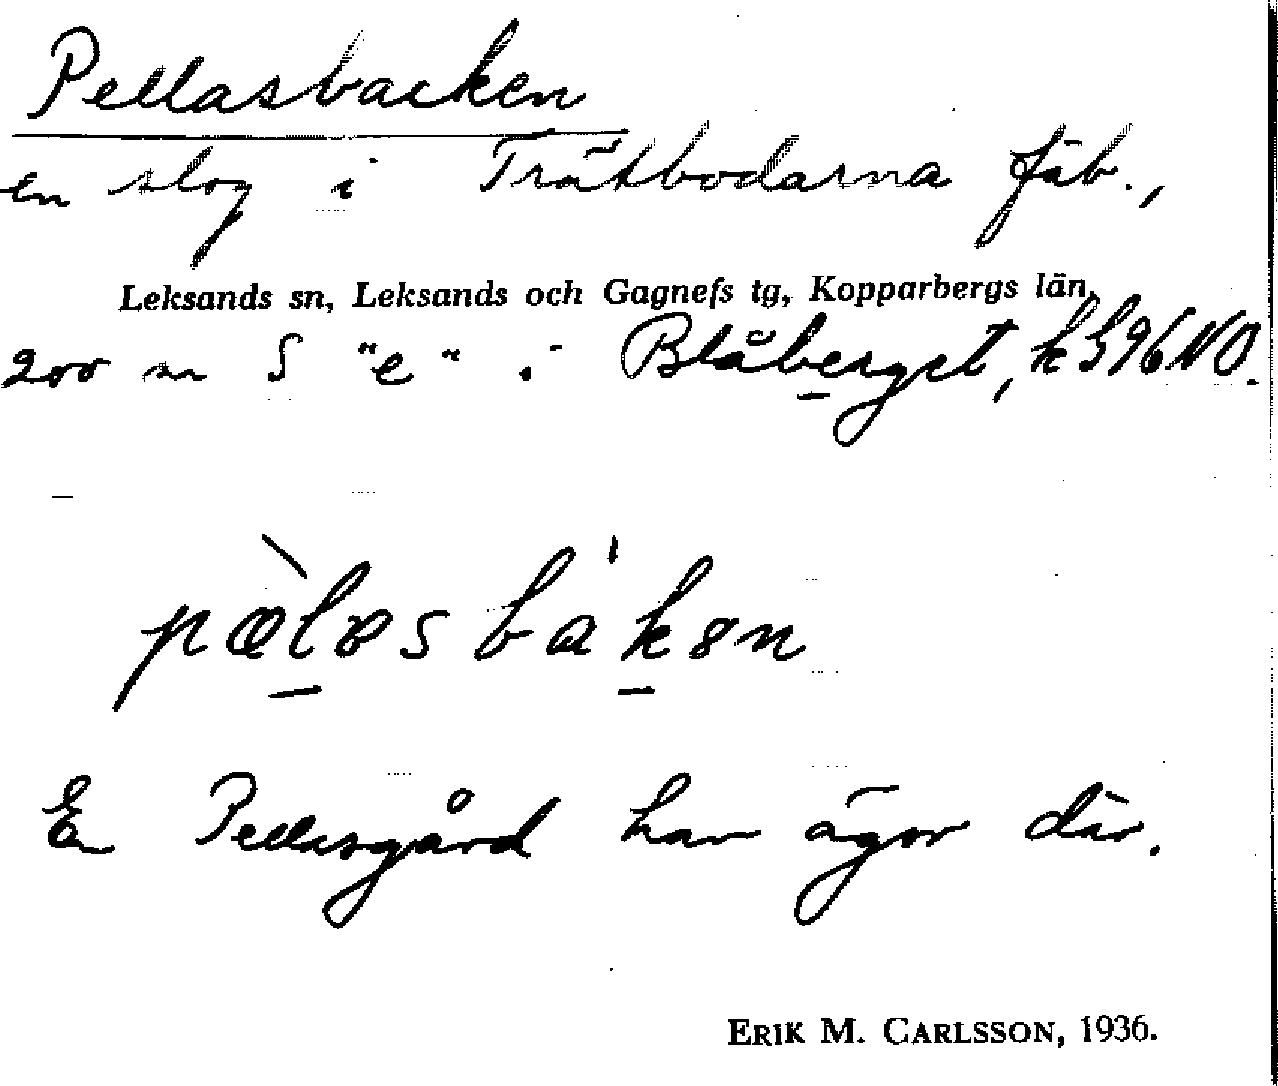 Pellasbacken
en slog i Trätbodarna fäb.,
Leksands sn, Leksands och Gagnefs tg, Kopparbergs län,
200 m S "e" i Blåberget, k S96NO.
pæ̀læsbákən
En Pellasgård har ägor där.
ERIK M. CARLSSON, 1936.